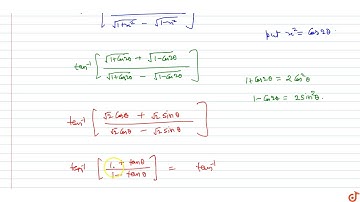 √1+x² - √1-x²
put x² = Cos2θ
tan⁻¹ [ √1+Cos2θ + √1-Cos2θ / √1+Cos2θ - √1-Cos2θ ]
1+Cos2θ = 2Cos²θ
1-Cos2θ = 2Sin²θ
tan⁻¹ [ √2 Cosθ + √2 Sinθ / √2 Cosθ - √2 Sinθ ]
tan⁻¹ [ 1 + tanθ / 1 - tanθ ] = tan⁻¹